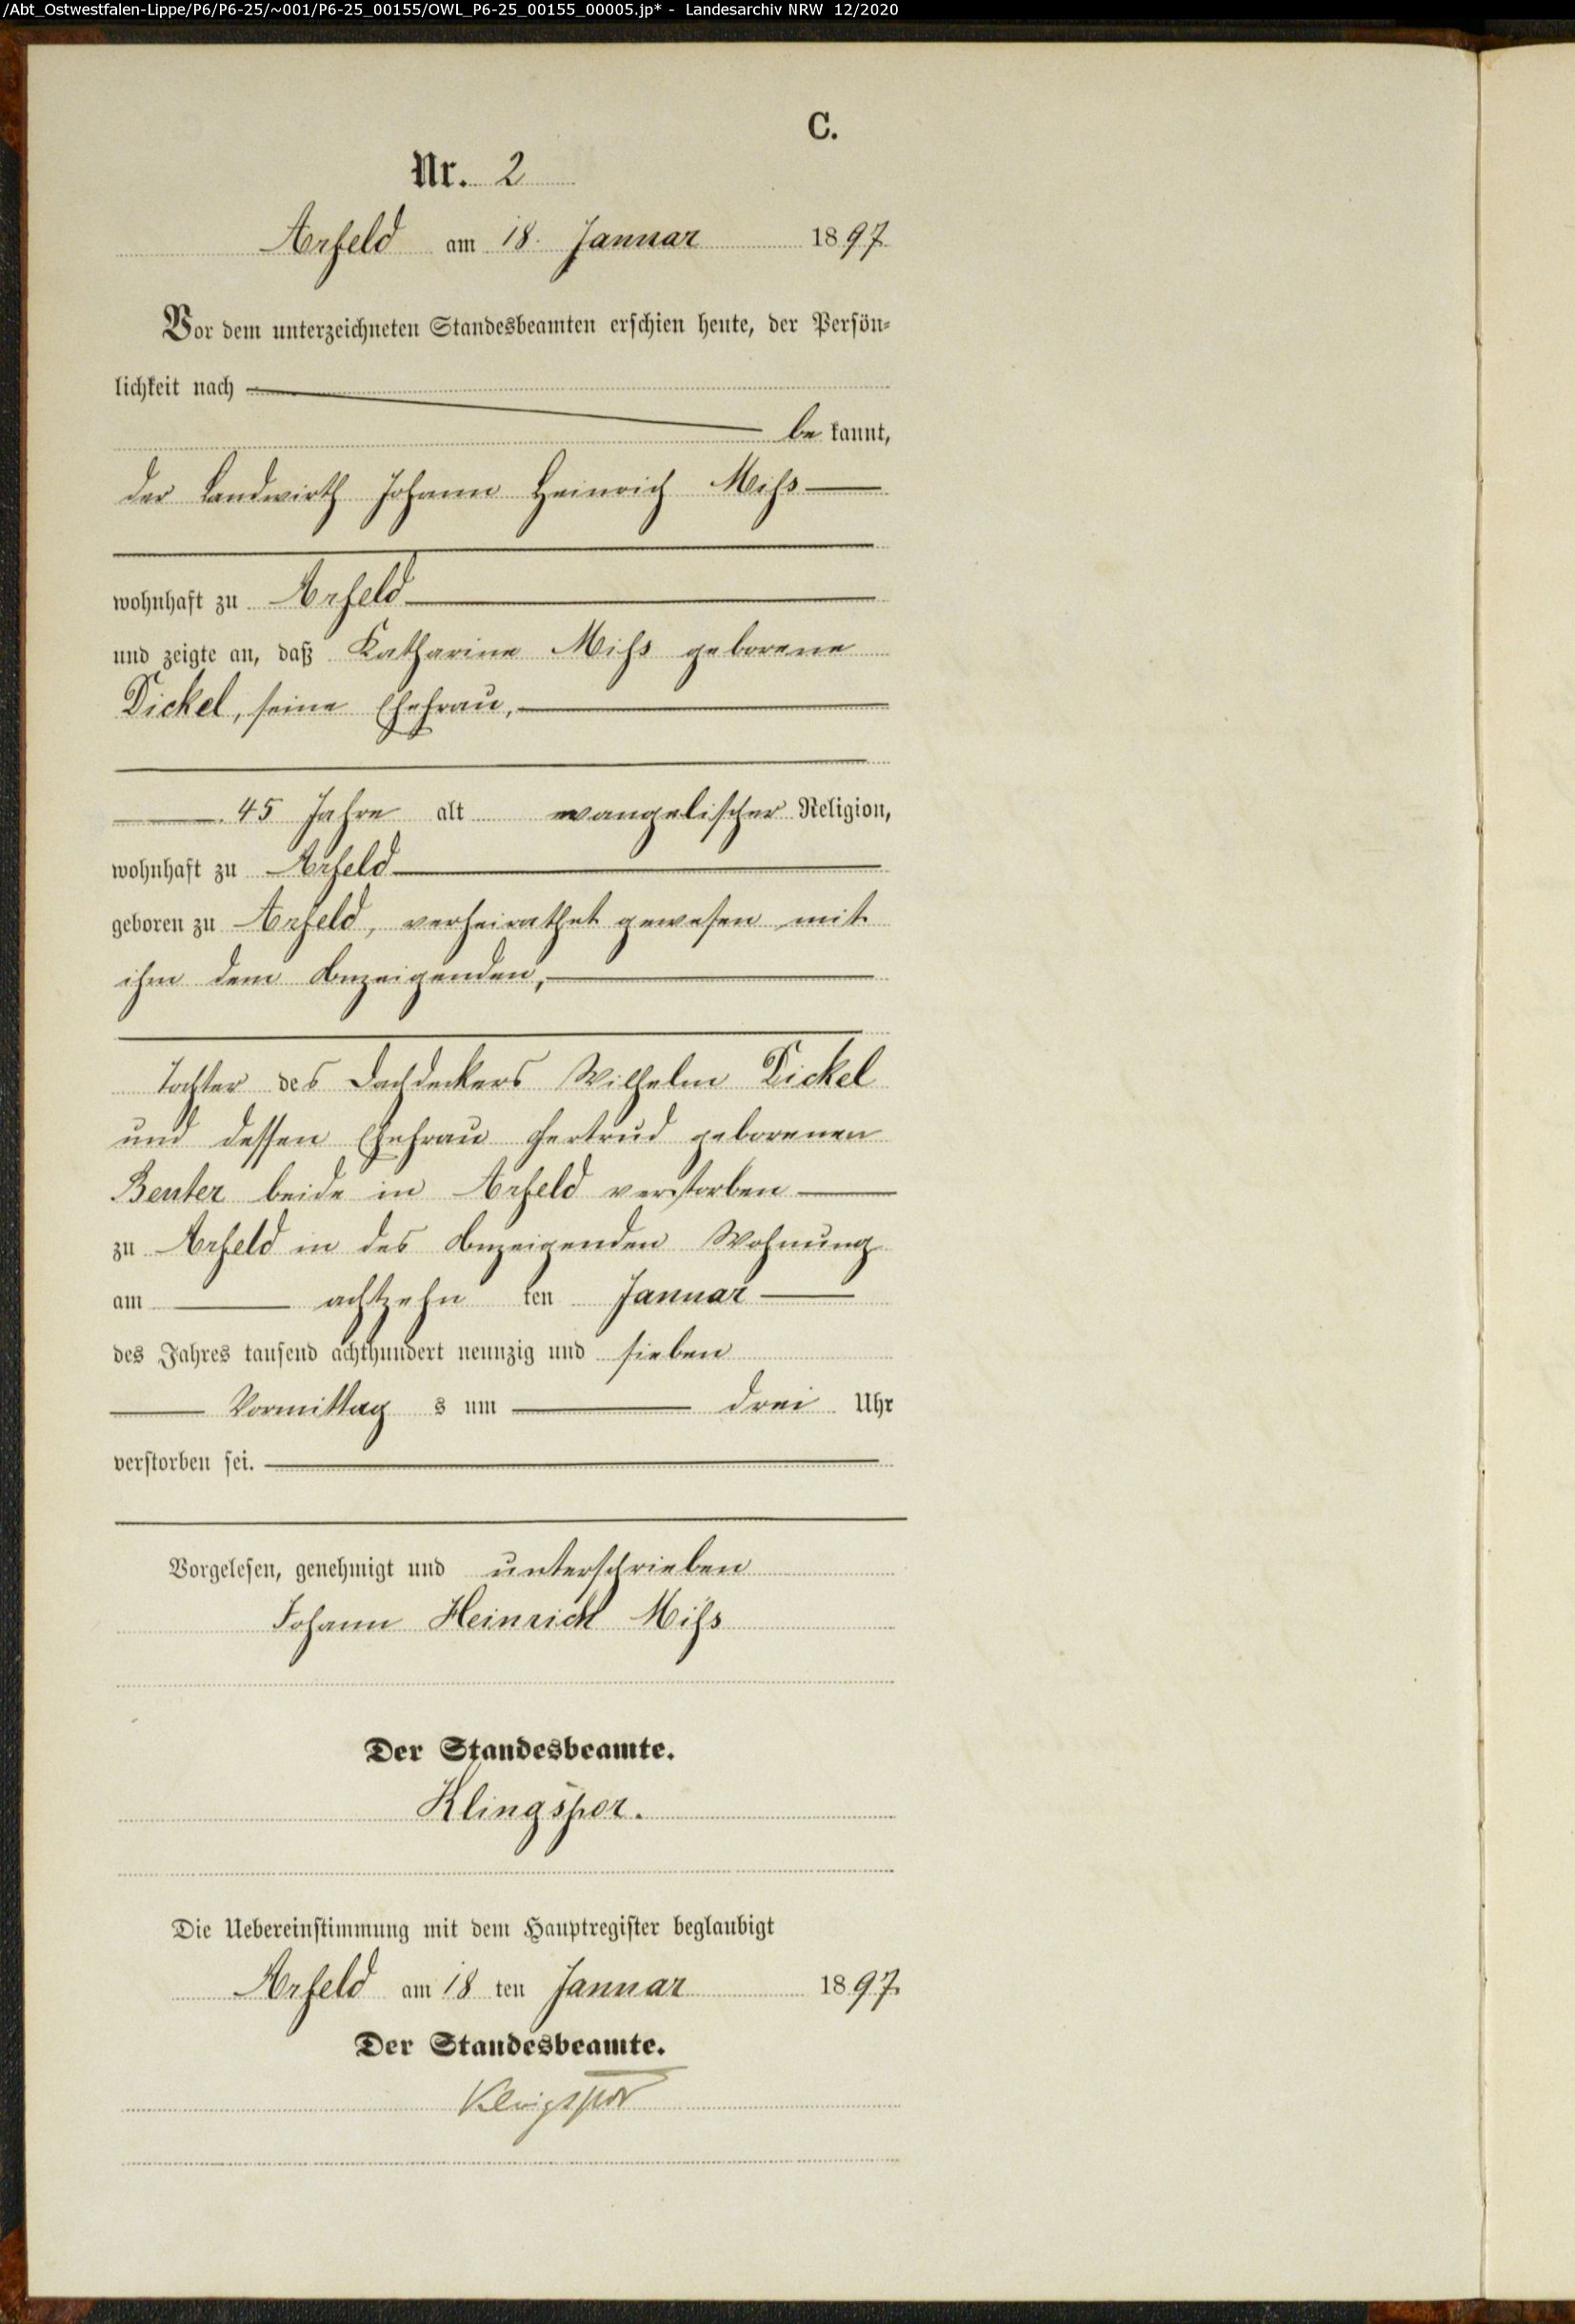 /Abt_Ostwestfalen-Lippe/P6/P6-25/~001/P6-25_00155/OWL_P6-25_00155_00005.jp* - Landesarchiv NRW 12/2020
C.
Nr. 2
Arfeld am 18. Januar 1897
Vor dem unterzeichneten Standesbeamten erschien heute, der Persön-
lichkeit nach
be kannt,
der Landwirth Johann Heinrich Miss
wohnhaft zu Arfeld
und zeigte an, daß Katharine Miss geborene
Dickel, seine Ehefrau,
45 Jahre alt evangelischer Religion,
wohnhaft zu Arfeld
geboren zu Arfeld, verheirathet gewesen mit
ihm dem Anzeigenden,
Tochter des Dachdeckers Wilhelm Dickel
und dessen Ehefrau Gertrud geborenen
Benter beide in Arfeld verstorben
zu Arfeld in des Anzeigenden Wohnung
am achtzehn ten Januar
des Jahres tausend achthundert neunzig und sieben
Vormittag s um drei Uhr
verstorben sei.
Vorgelesen, genehmigt und unterschrieben
Johann Heinrich Miss
Der Standesbeamte.
Klingspor.
Die Uebereinstimmung mit dem Hauptregister beglaubigt
Arfeld am 18 ten Januar 1897.
Der Standesbeamte.
Klingspor